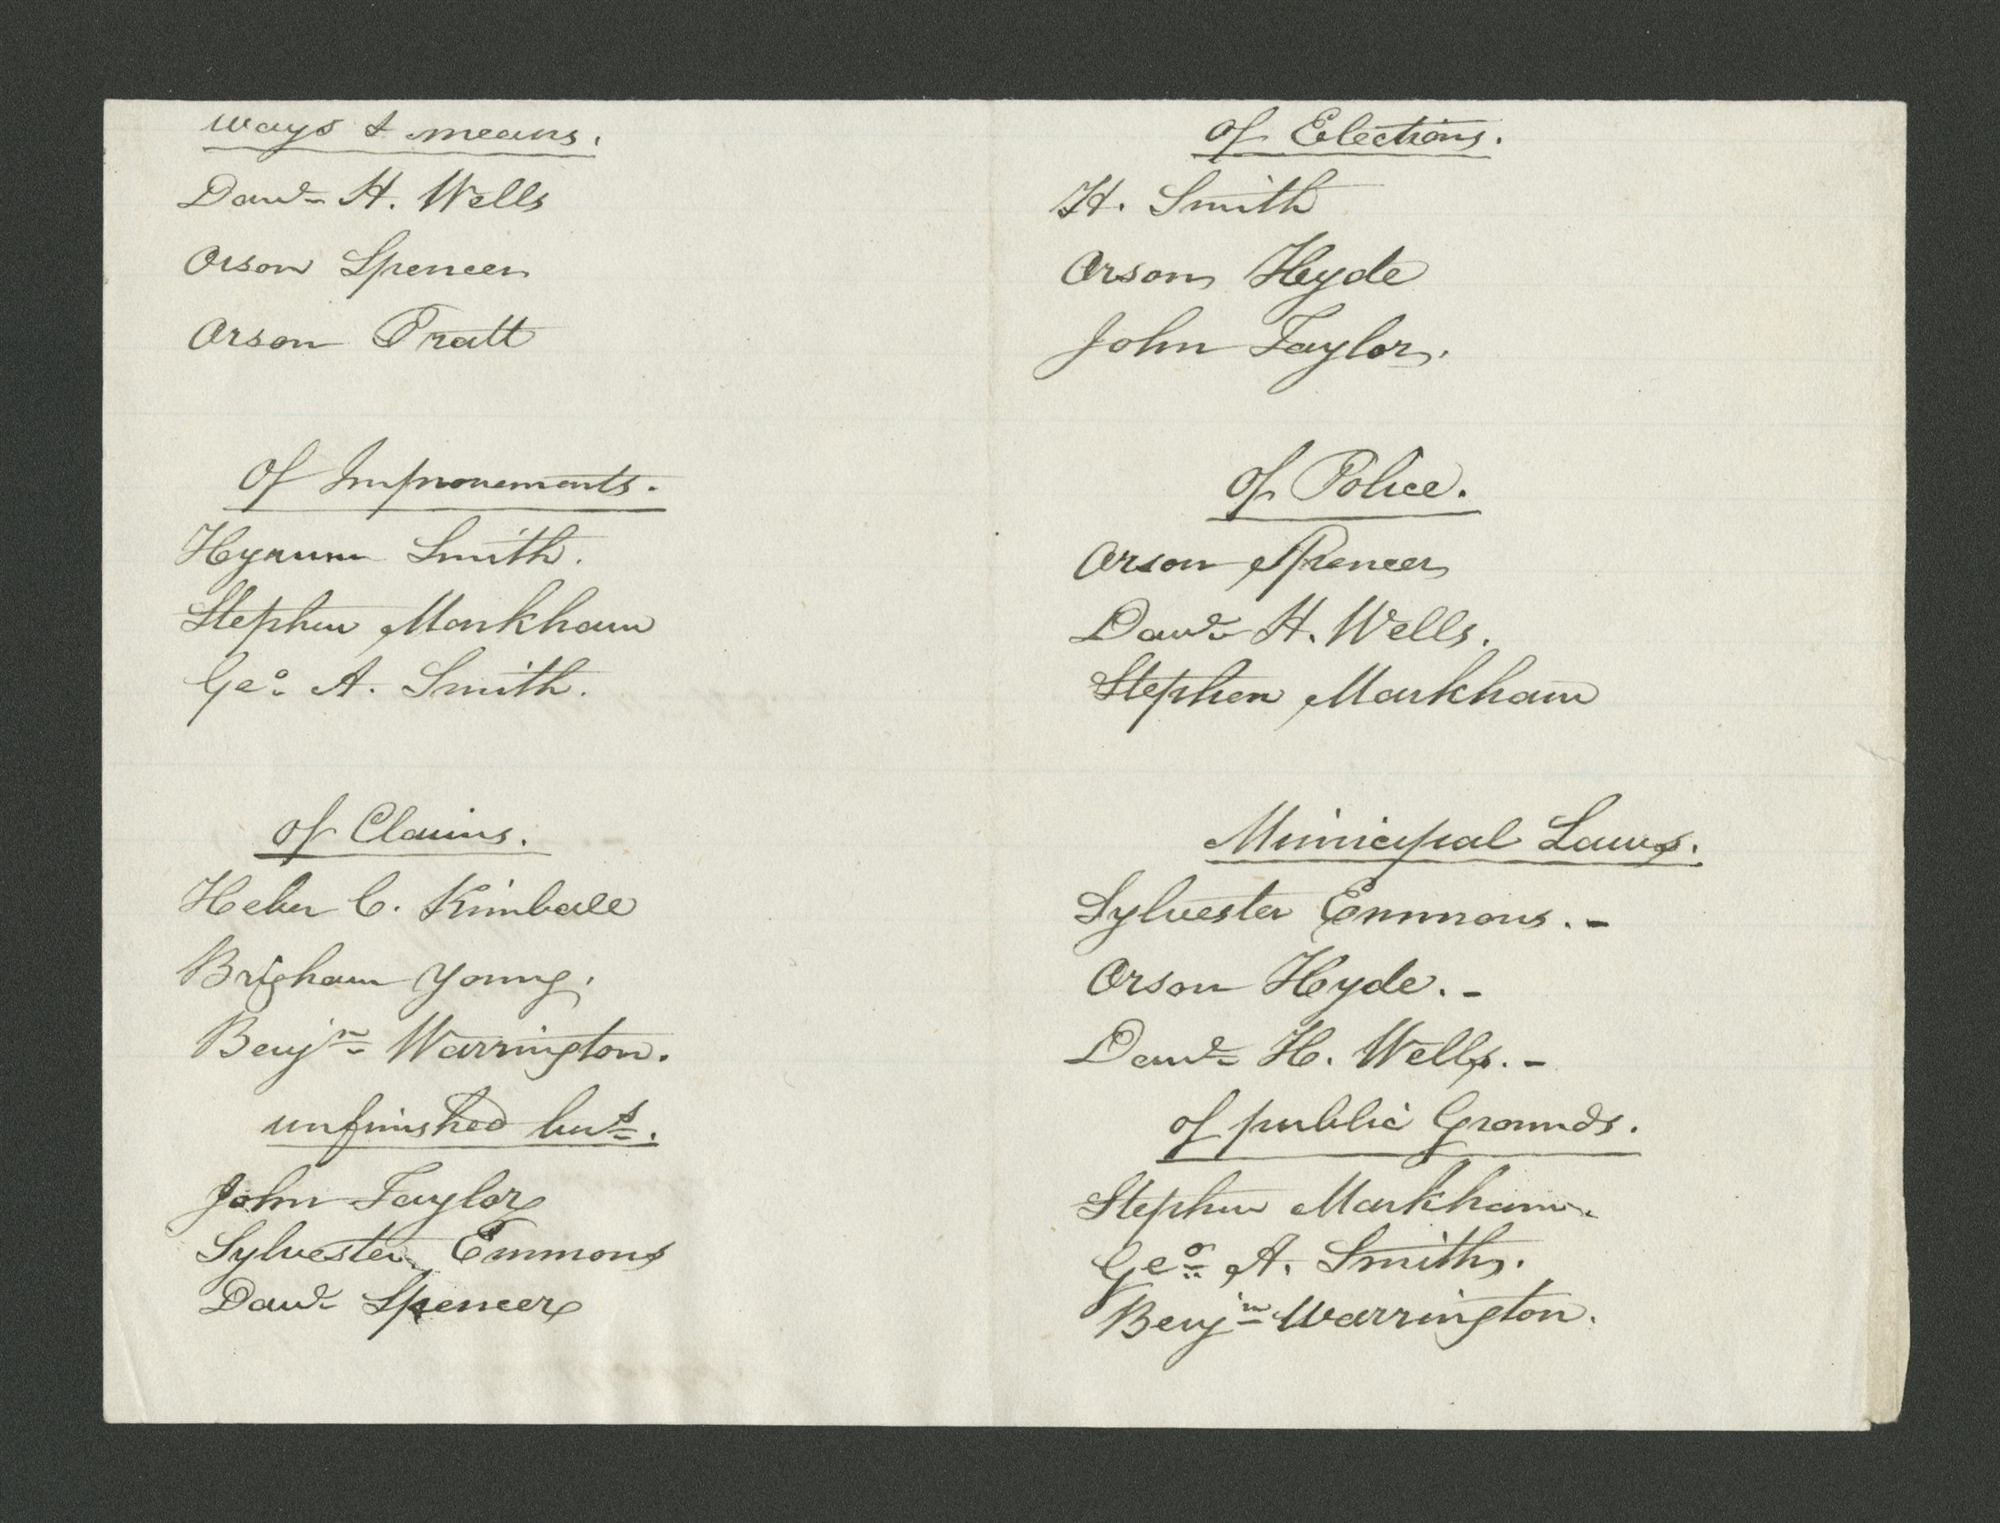 ways & means.
Danl. H. Wells
Orson Spencer
Orson Pratt
Of Improvements.
Hyrum Smith.
Stephen Markham
Geo. A. Smith.
of Claims.
Heber C. Kimball
Brigham Young.
Benjn. Warrington.
unfinished bus.
John Taylor
Sylvester Emmons
Danl. Spencer
of Elections.
H. Smith
Orson Hyde
John Taylor.
Of Police.
Orson Spencer
Danl. H. Wells.
Stephen Markham
Municipal Laws.
Sylvester Emmons. -
Orson Hyde. -
Danl. H. Wells. -
of public Grounds.
Stephen Markham.
Geo. A. Smith.
Benjn. Warrington.